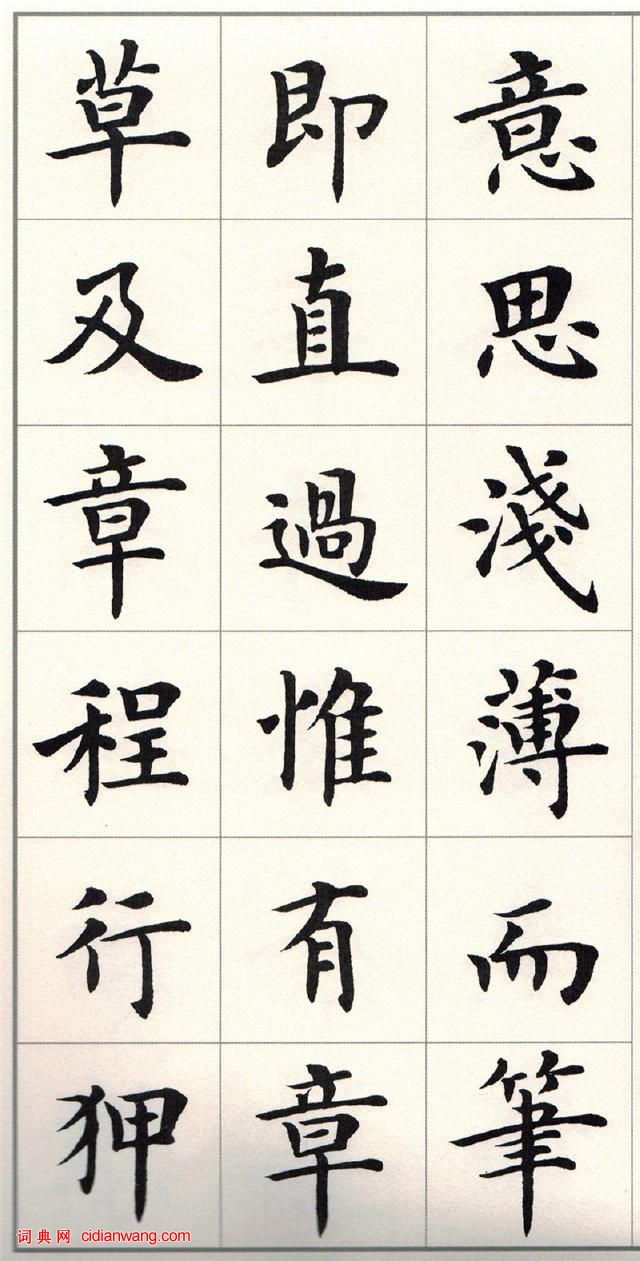 意思淺薄而筆
即直過惟有章
草及章程行狎
词典网 cidianwang.com